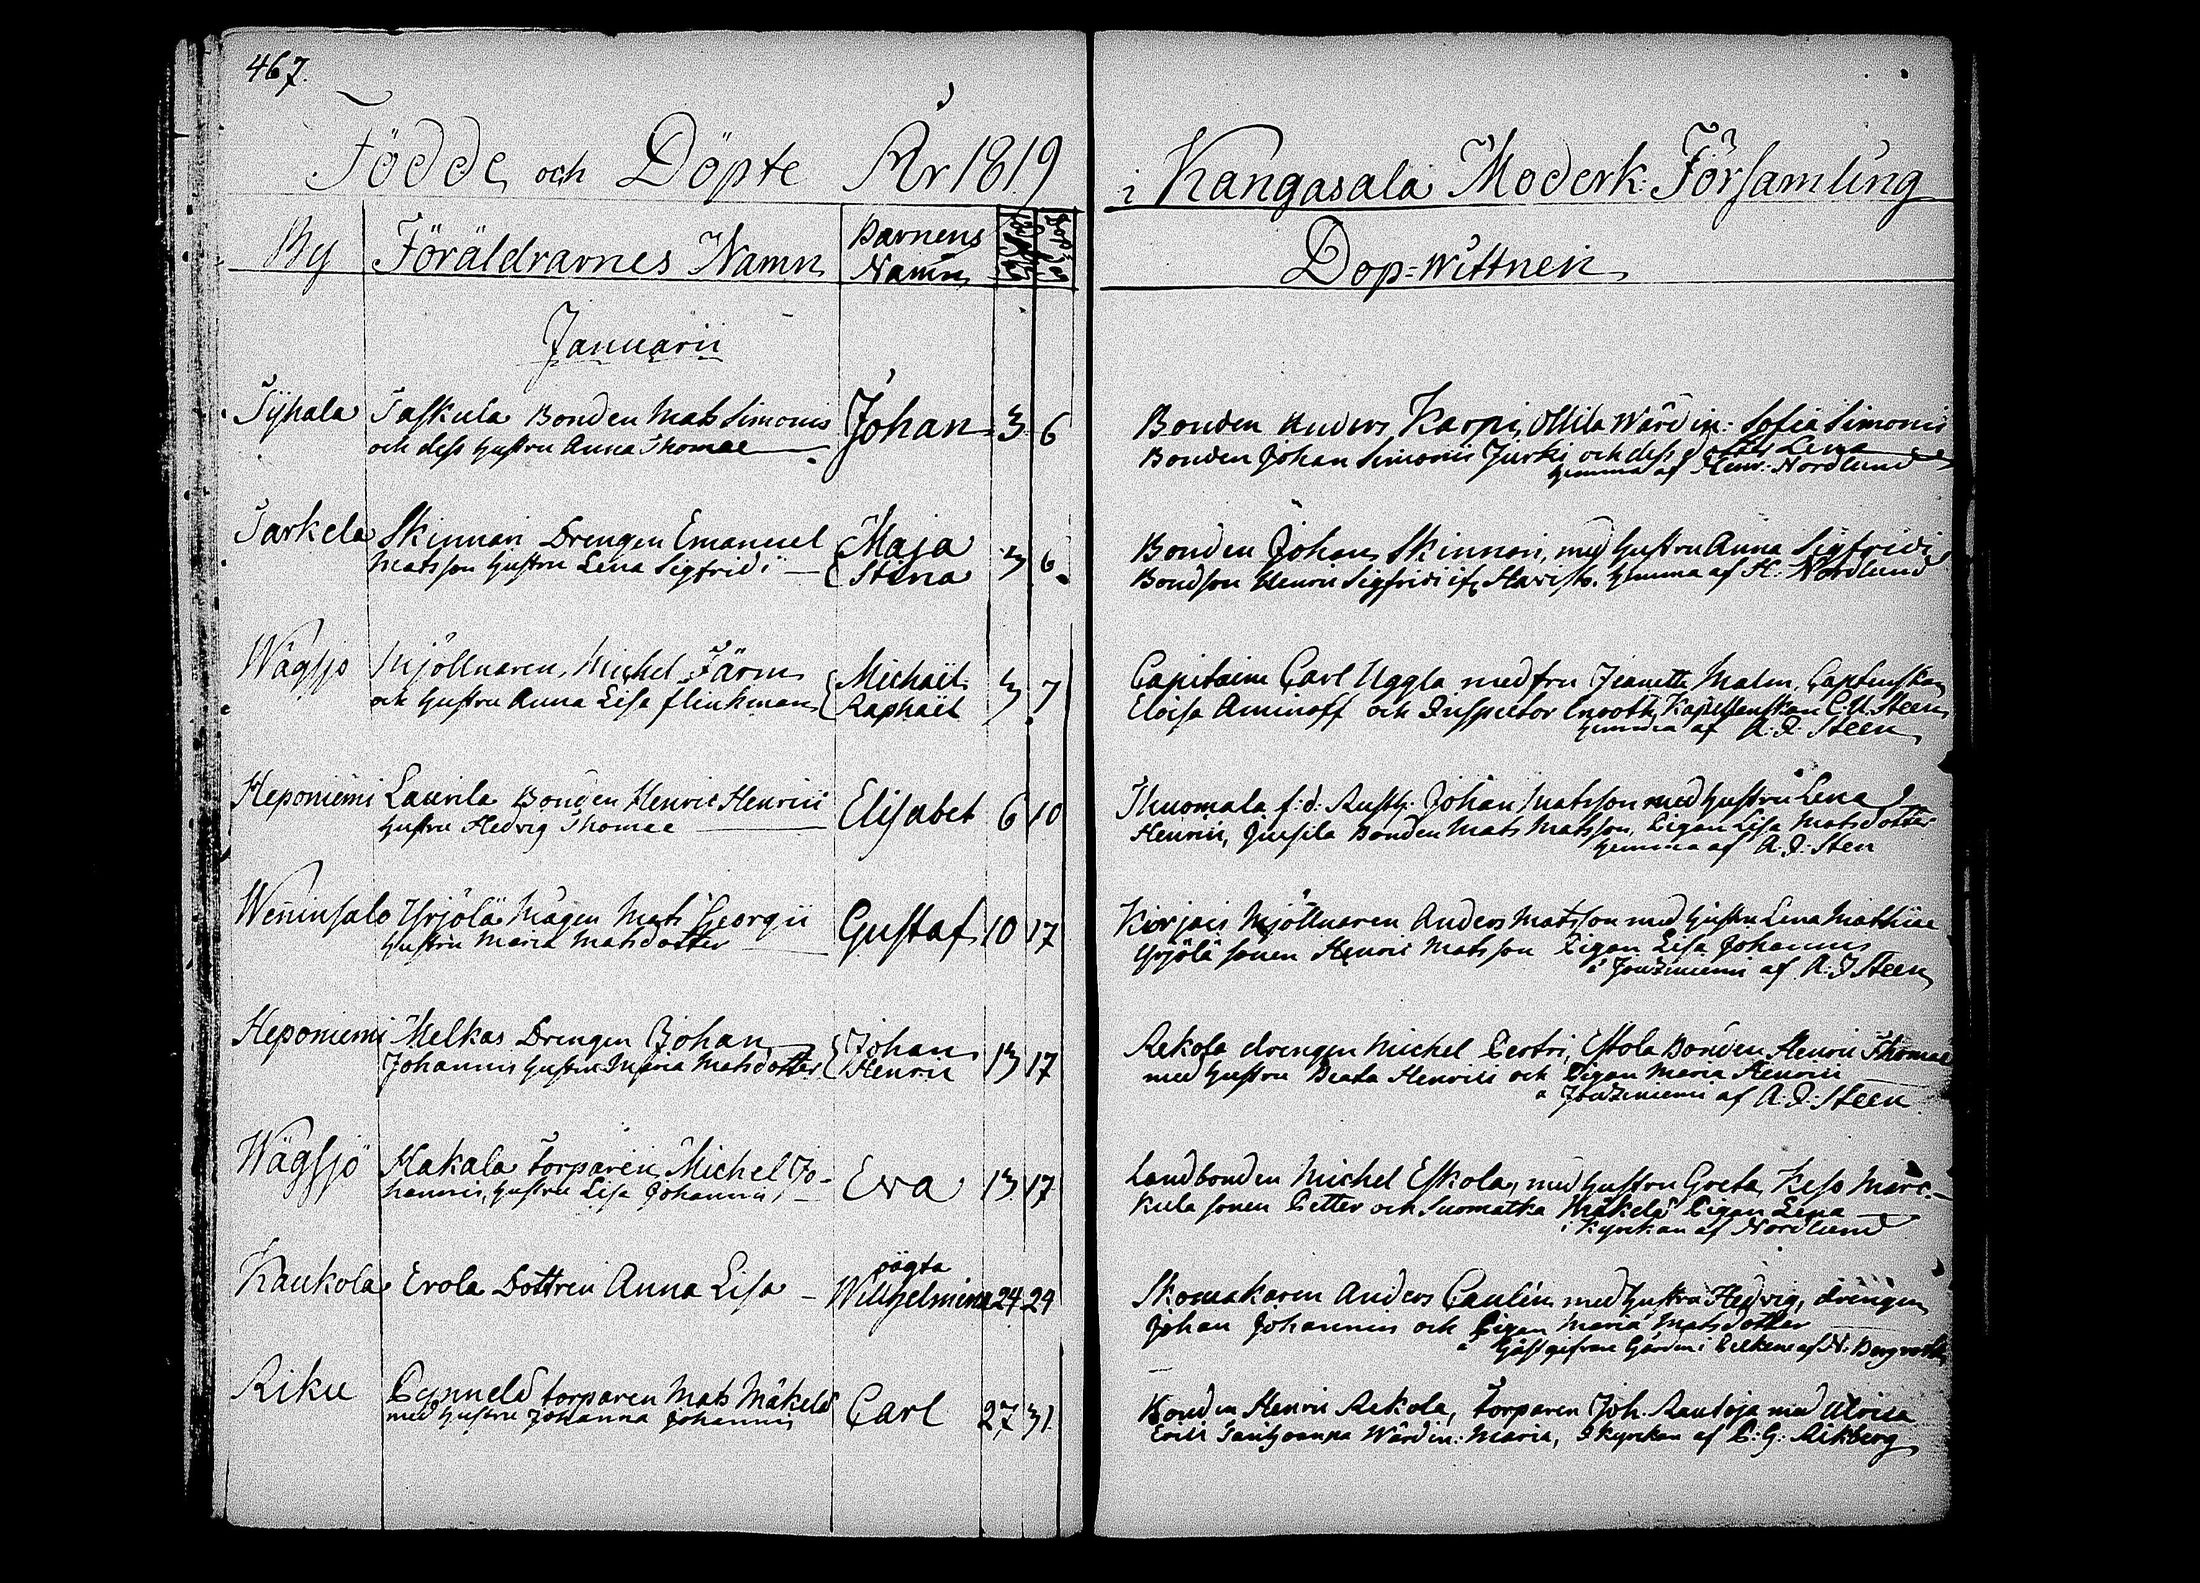 467.
Födde och Döpte År 1819
i Kangasala Moderk: Församling
By Föräldrarnes Namn Barnens Namn
Dop=Wittnen
Januarii
Typala Taskula Bonden Mats Simonis Johan 3 6
och dess hustru Anna Thomae
Bonden Anders Karpi, Ollila Wärdin: Sofia Simonis
Bonden Johan Simonis Jurki och dess dotter Lena
hemma af Henr: Nordlund
Tarkela Skinnari Drengen Emanuel Maja 3 6
Matsson hustru Lena Sigfridi Stina
Bonden Johan Skinnari, med hustru Anna Sigfridi
Bondson Henric Sigfridi hemma af H: Nordlund
Wägsjö Mjöllnaren Michel Färm Michaël 3 7
och hustru Anna Lisa flinkman Raphaël
Capitaine Carl Uggla med fru Jeanette Malm, Captenskan
Eloisa Aminoff och Inspector Enrooth, Kapellanskan C.U. Steen
hemma af A: J: Steen
Heponiemi Laurila Bonden Henric Henrici Elisabet 6 10
hustru Hedvig Thomae
Thuomala f:d: Rusth: Johan Matsson med hustru Lena
Henrici, Jussila Bonden Mats Matsson, Pigan Lisa Matsdotter
hemma af A: J: Sten
Weninsalo Yrjölä Mågen Mats Georgii Gustaf 10 17
hustru Maria Matsdotter
Mjöllnaren Anders Matsson med hustru Lena Mathiae
Yrjölä sonen Henric Matsson Pigan Lisa Johannis
af A. J Steen
Heponiemi Melkas Drengen Johan Johan 13 17
Johannis hustru Maria Matsdotter Henric
Rekola drengen Michel Pertri, Estola Bonden Henric Thomae
med hustru Beata Henrici och Pigan Maria Henrici
af A: J: Steen
Wägsjö Hakala torparen Michel Jo- Eva 13 17
hannis, hustru Lisa Johannis
Landbonden Michel Eskola, med hustru Greta, Keso Marc-
kula sonen Petter och Suomatka Mäkelä Pigan Lena
i kyrckan af Nordlund
Kaukola Erola Dottren Anna Lisa oägta Wilhelmina 24 29
Skomakaren Anders Paulin med hustru Hedvig, drengen
Johan Johannis och Pigan Maria Matsdotter
Gästgifvare Gården i Pelkene af N: Bergroth
Riku torparen Mats Mäkelä Carl 27 31
med hustru Johanna Johannis
Bonden Henric Rekola, torparen Joh. Rautoja med Ulrica
Wärdin: Maria, I kyrckan af C: G: Aikberg